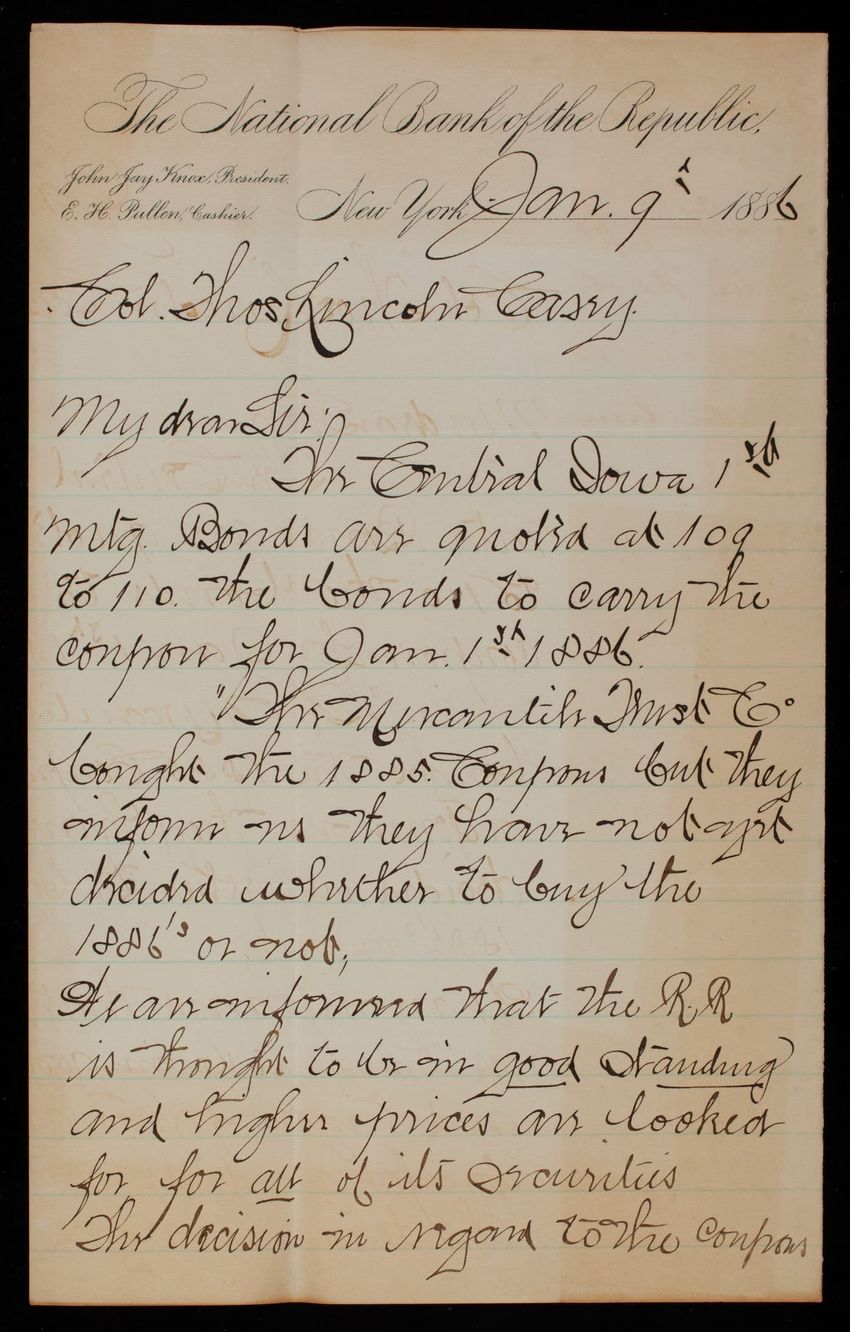 The National Bank of the Republic,
John Jay Knox, President.
E. H. Pullen, Cashier.
New York Jan. 9th 1886
Col. Thos Lincoln Casey.
My dear Sir:
The Central Iowa 1st
Mtg. Bonds are quoted at 109
to 110. the bonds to carry the
coupon for Jan. 1st 1886.
"The Mercantile Trust Co
bought the 1885. Coupons but they
inform us they have not yet
decided whether to buy the
1886's or not,
We are informed that the R.R
is thought to be in good standing
and higher prices are looked
for for all of its securities
The decision in regard to the coupons